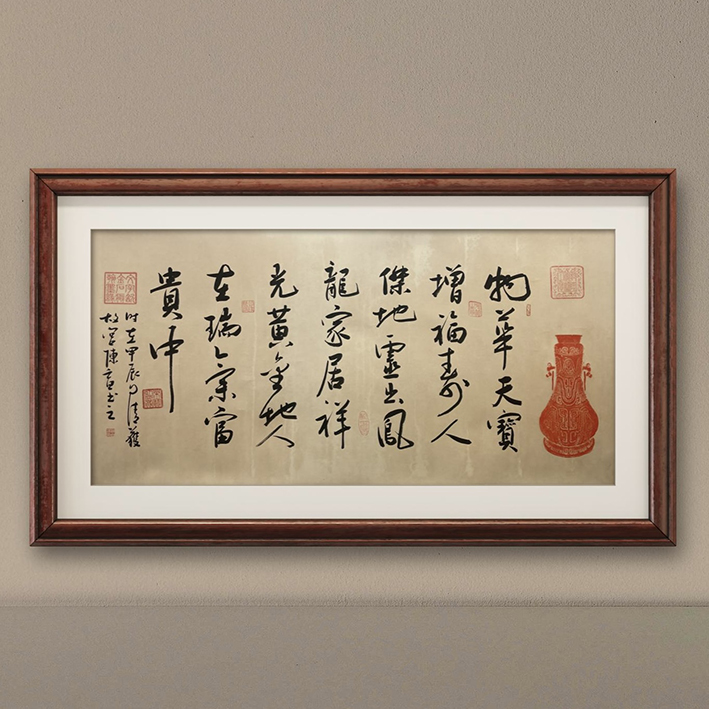 物華天寶
增福壽人
傑地靈出鳳
龍家居祥
光黃金地人
在瑞氣富
貴中
时在甲辰
陳